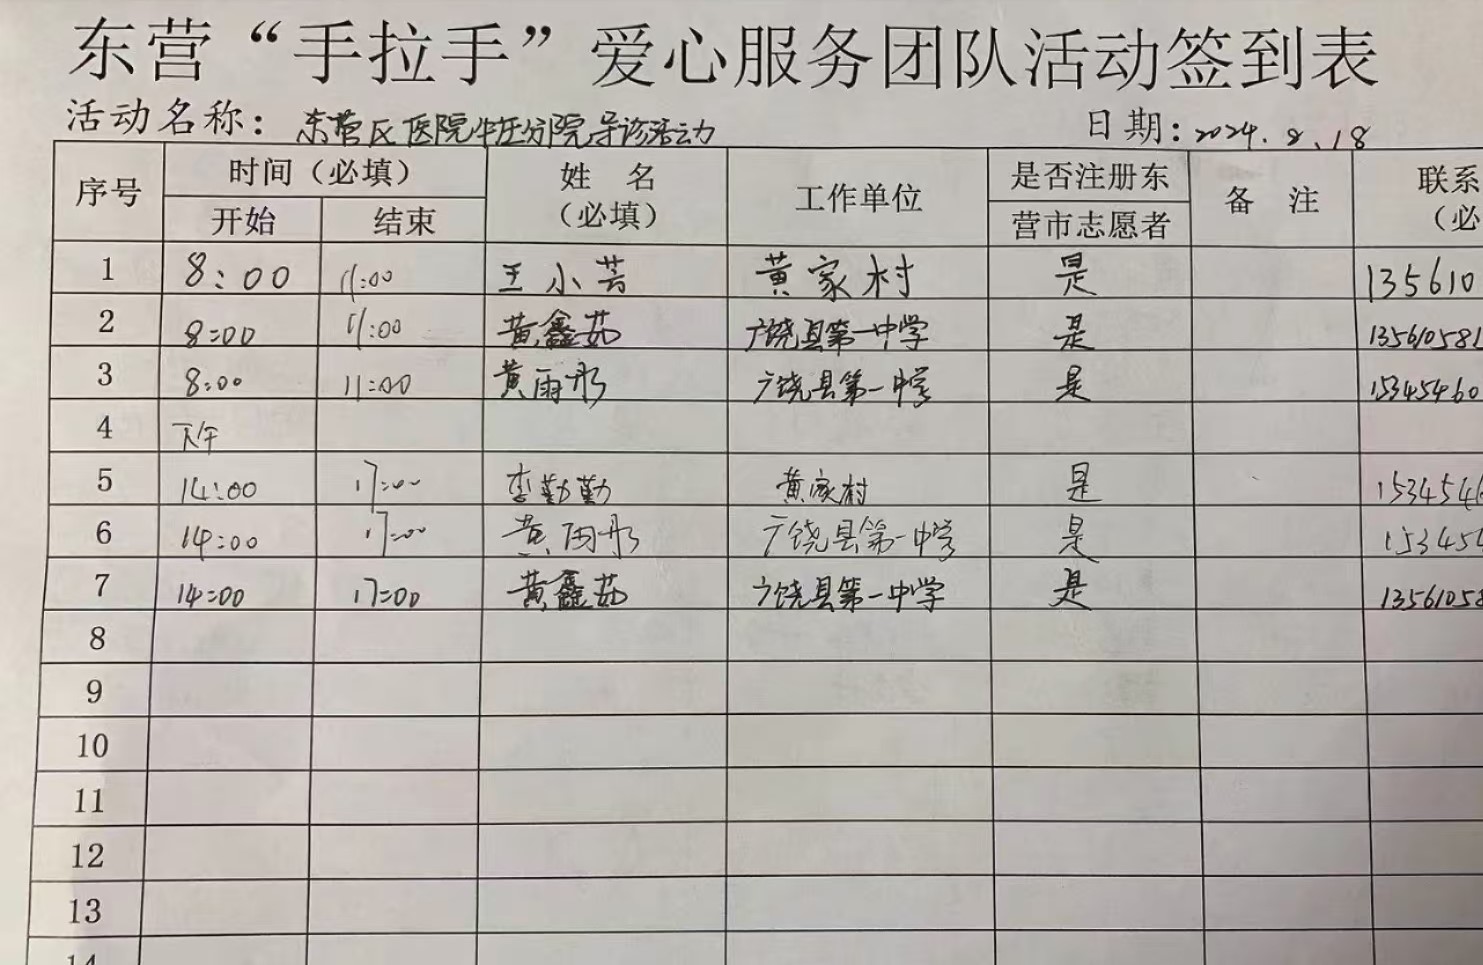 东营“手拉手”爱心服务团队活动签到表
活动名称：东营区医院牛庄分院导诊活动 日期：2024.8.18
序号 时间（必填） 姓 名（必填） 工作单位 是否注册东营市志愿者 备 注 联系（必
开始 结束
1 8:00 11:00 王小芸 黄家村 是 135610
2 8:00 11:00 黄鑫茹 广饶县第一中学 是 135610581
3 8:00 11:00 黄雨彤 广饶县第一中学 是 15345460
4 下午
5 14:00 17:00 李勤勤 黄家村 是 1534546
6 14:00 17:00 黄雨彤 广饶县第一中学 是 153454
7 14:00 17:00 黄鑫茹 广饶县第一中学 是 13561058
8
9
10
11
12
13
14